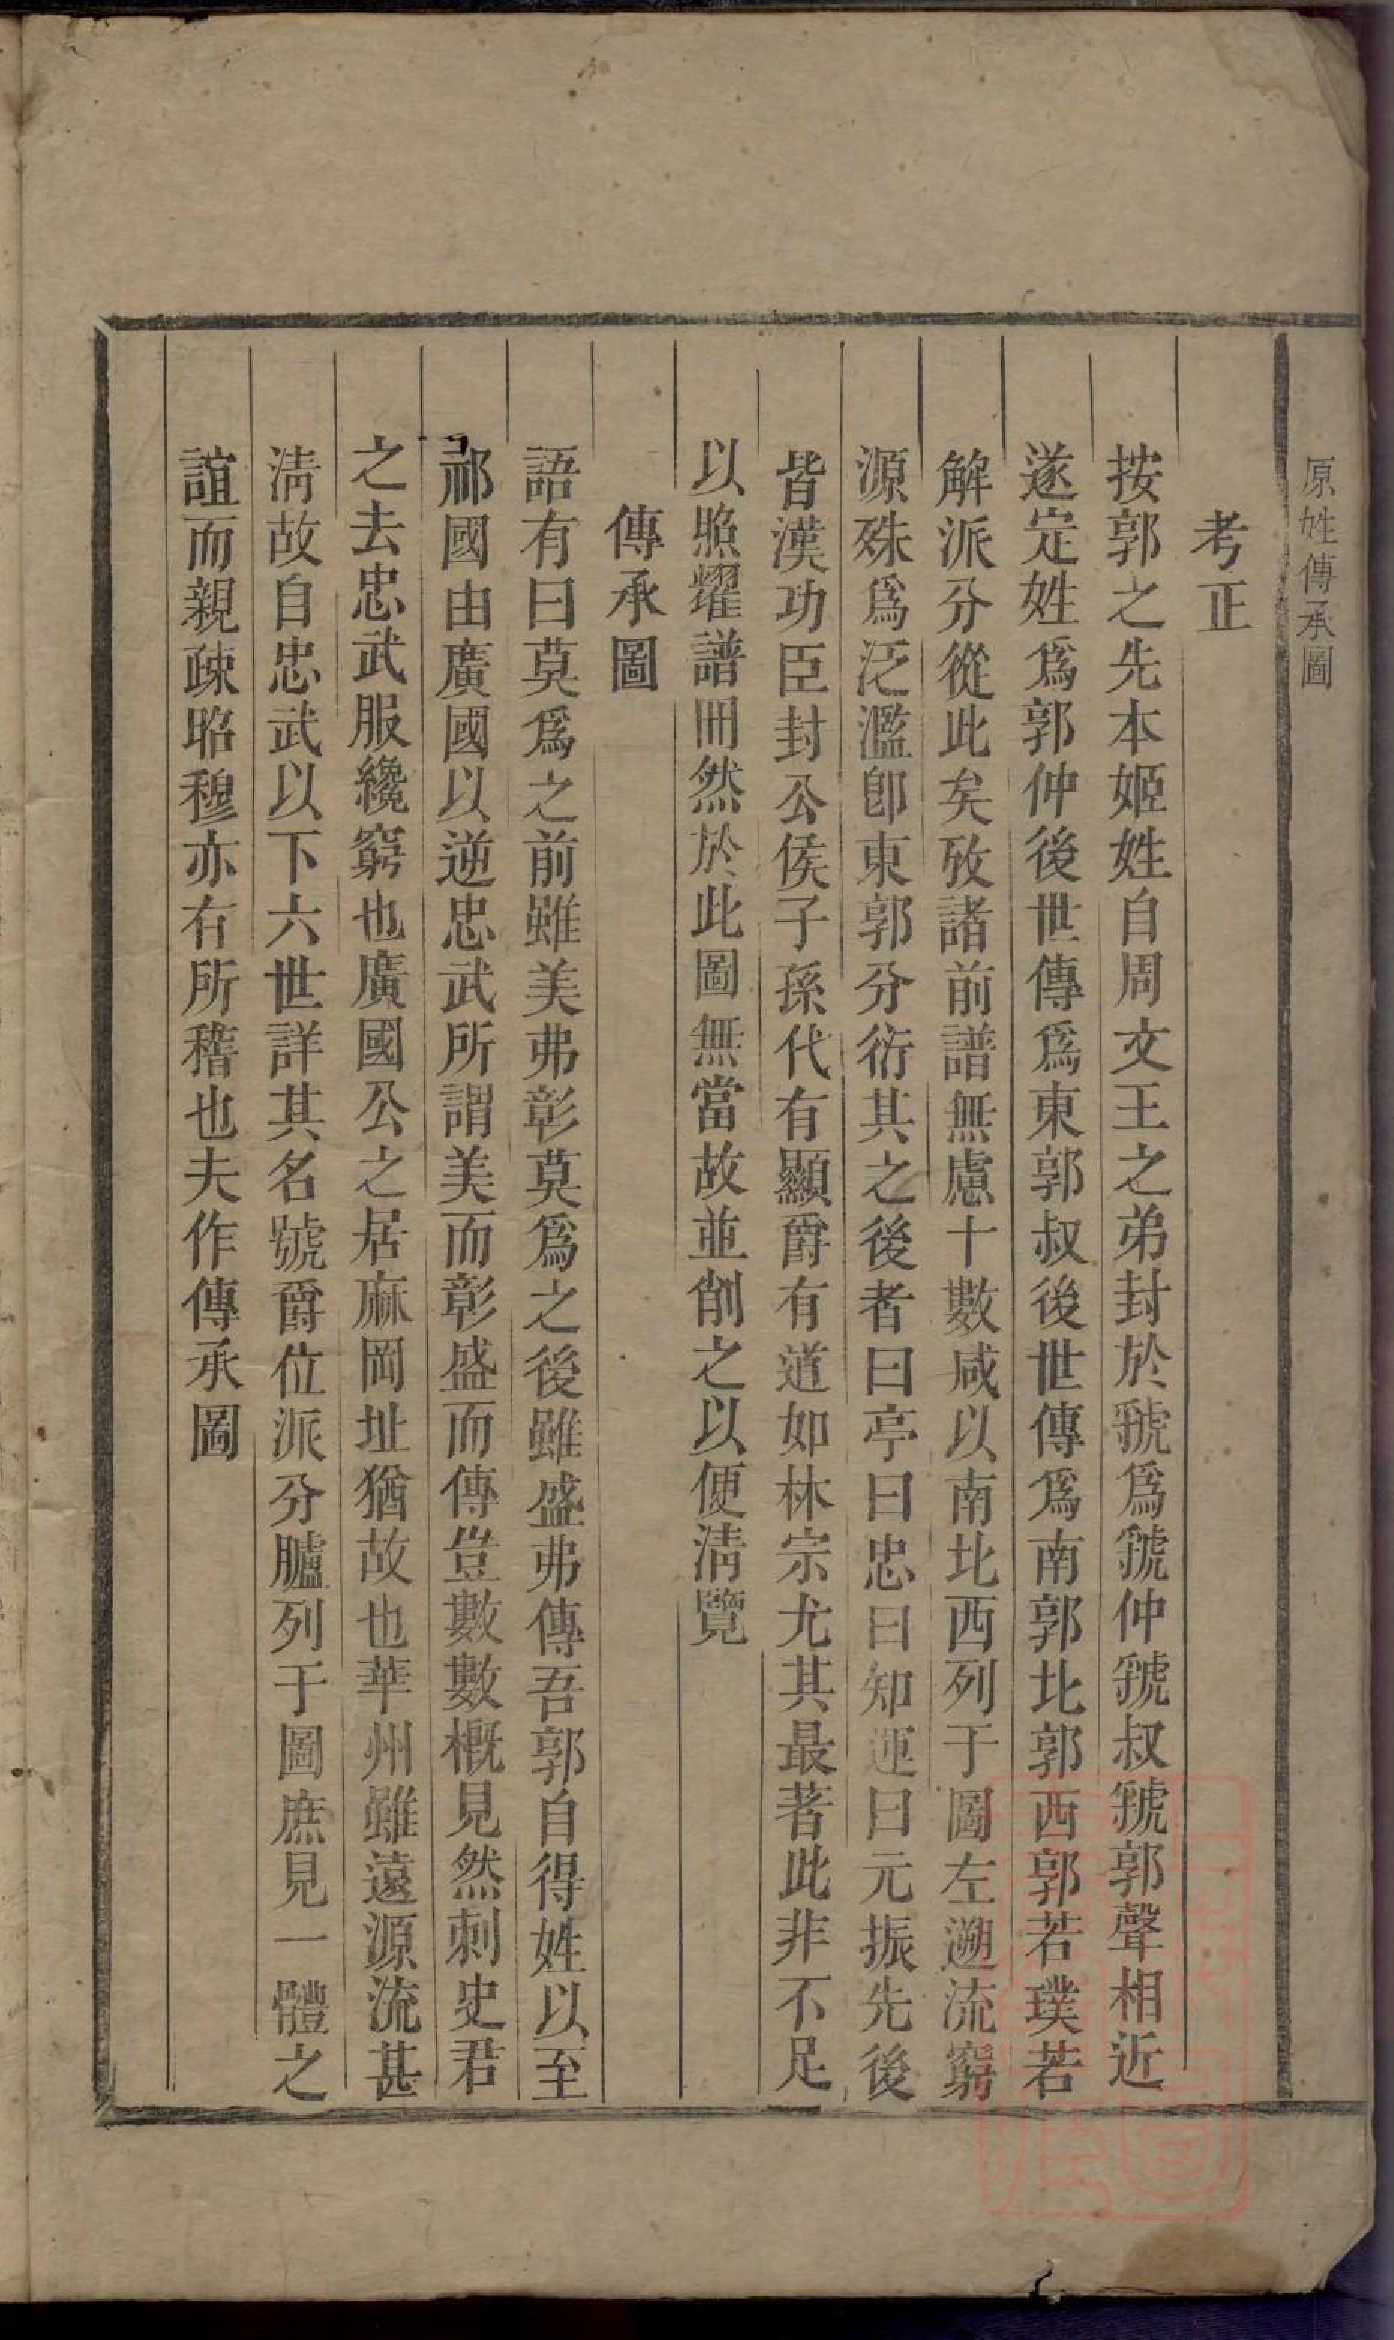 原姓傳承圖
考正
按郭之先本姬姓自周文王之弟封於虢爲虢仲虢叔虢郭聲相近
遂定姓爲郭仲後世傳爲東郭叔後世傳爲南郭北郭西郭若璞若
解派分從此矣攷諸前譜無慮十數咸以南北西列于圖左遡流窮
源殊爲泛濫卽東郭分衍其之後者曰亭曰忠曰知運曰元振先後
皆漢功臣封公侯子孫代有顯爵有道如林宗尤其最著此非不足
以照耀譜冊然於此圖無當故並削之以便淸覽
傳承圖
語有曰莫爲之前雖美弗彰莫爲之後雖盛弗傳吾郭自得姓以至
祁國由廣國以逆忠武所謂美而彰盛而傳豈數數槪見然刺史君
之去忠武服纔窮也廣國公之居麻岡址猶故也華州雖遠源流甚
淸故自忠武以下六世詳其名號爵位派分臚列于圖庶見一體之
誼而親疎昭穆亦有所稽也夫作傳承圖